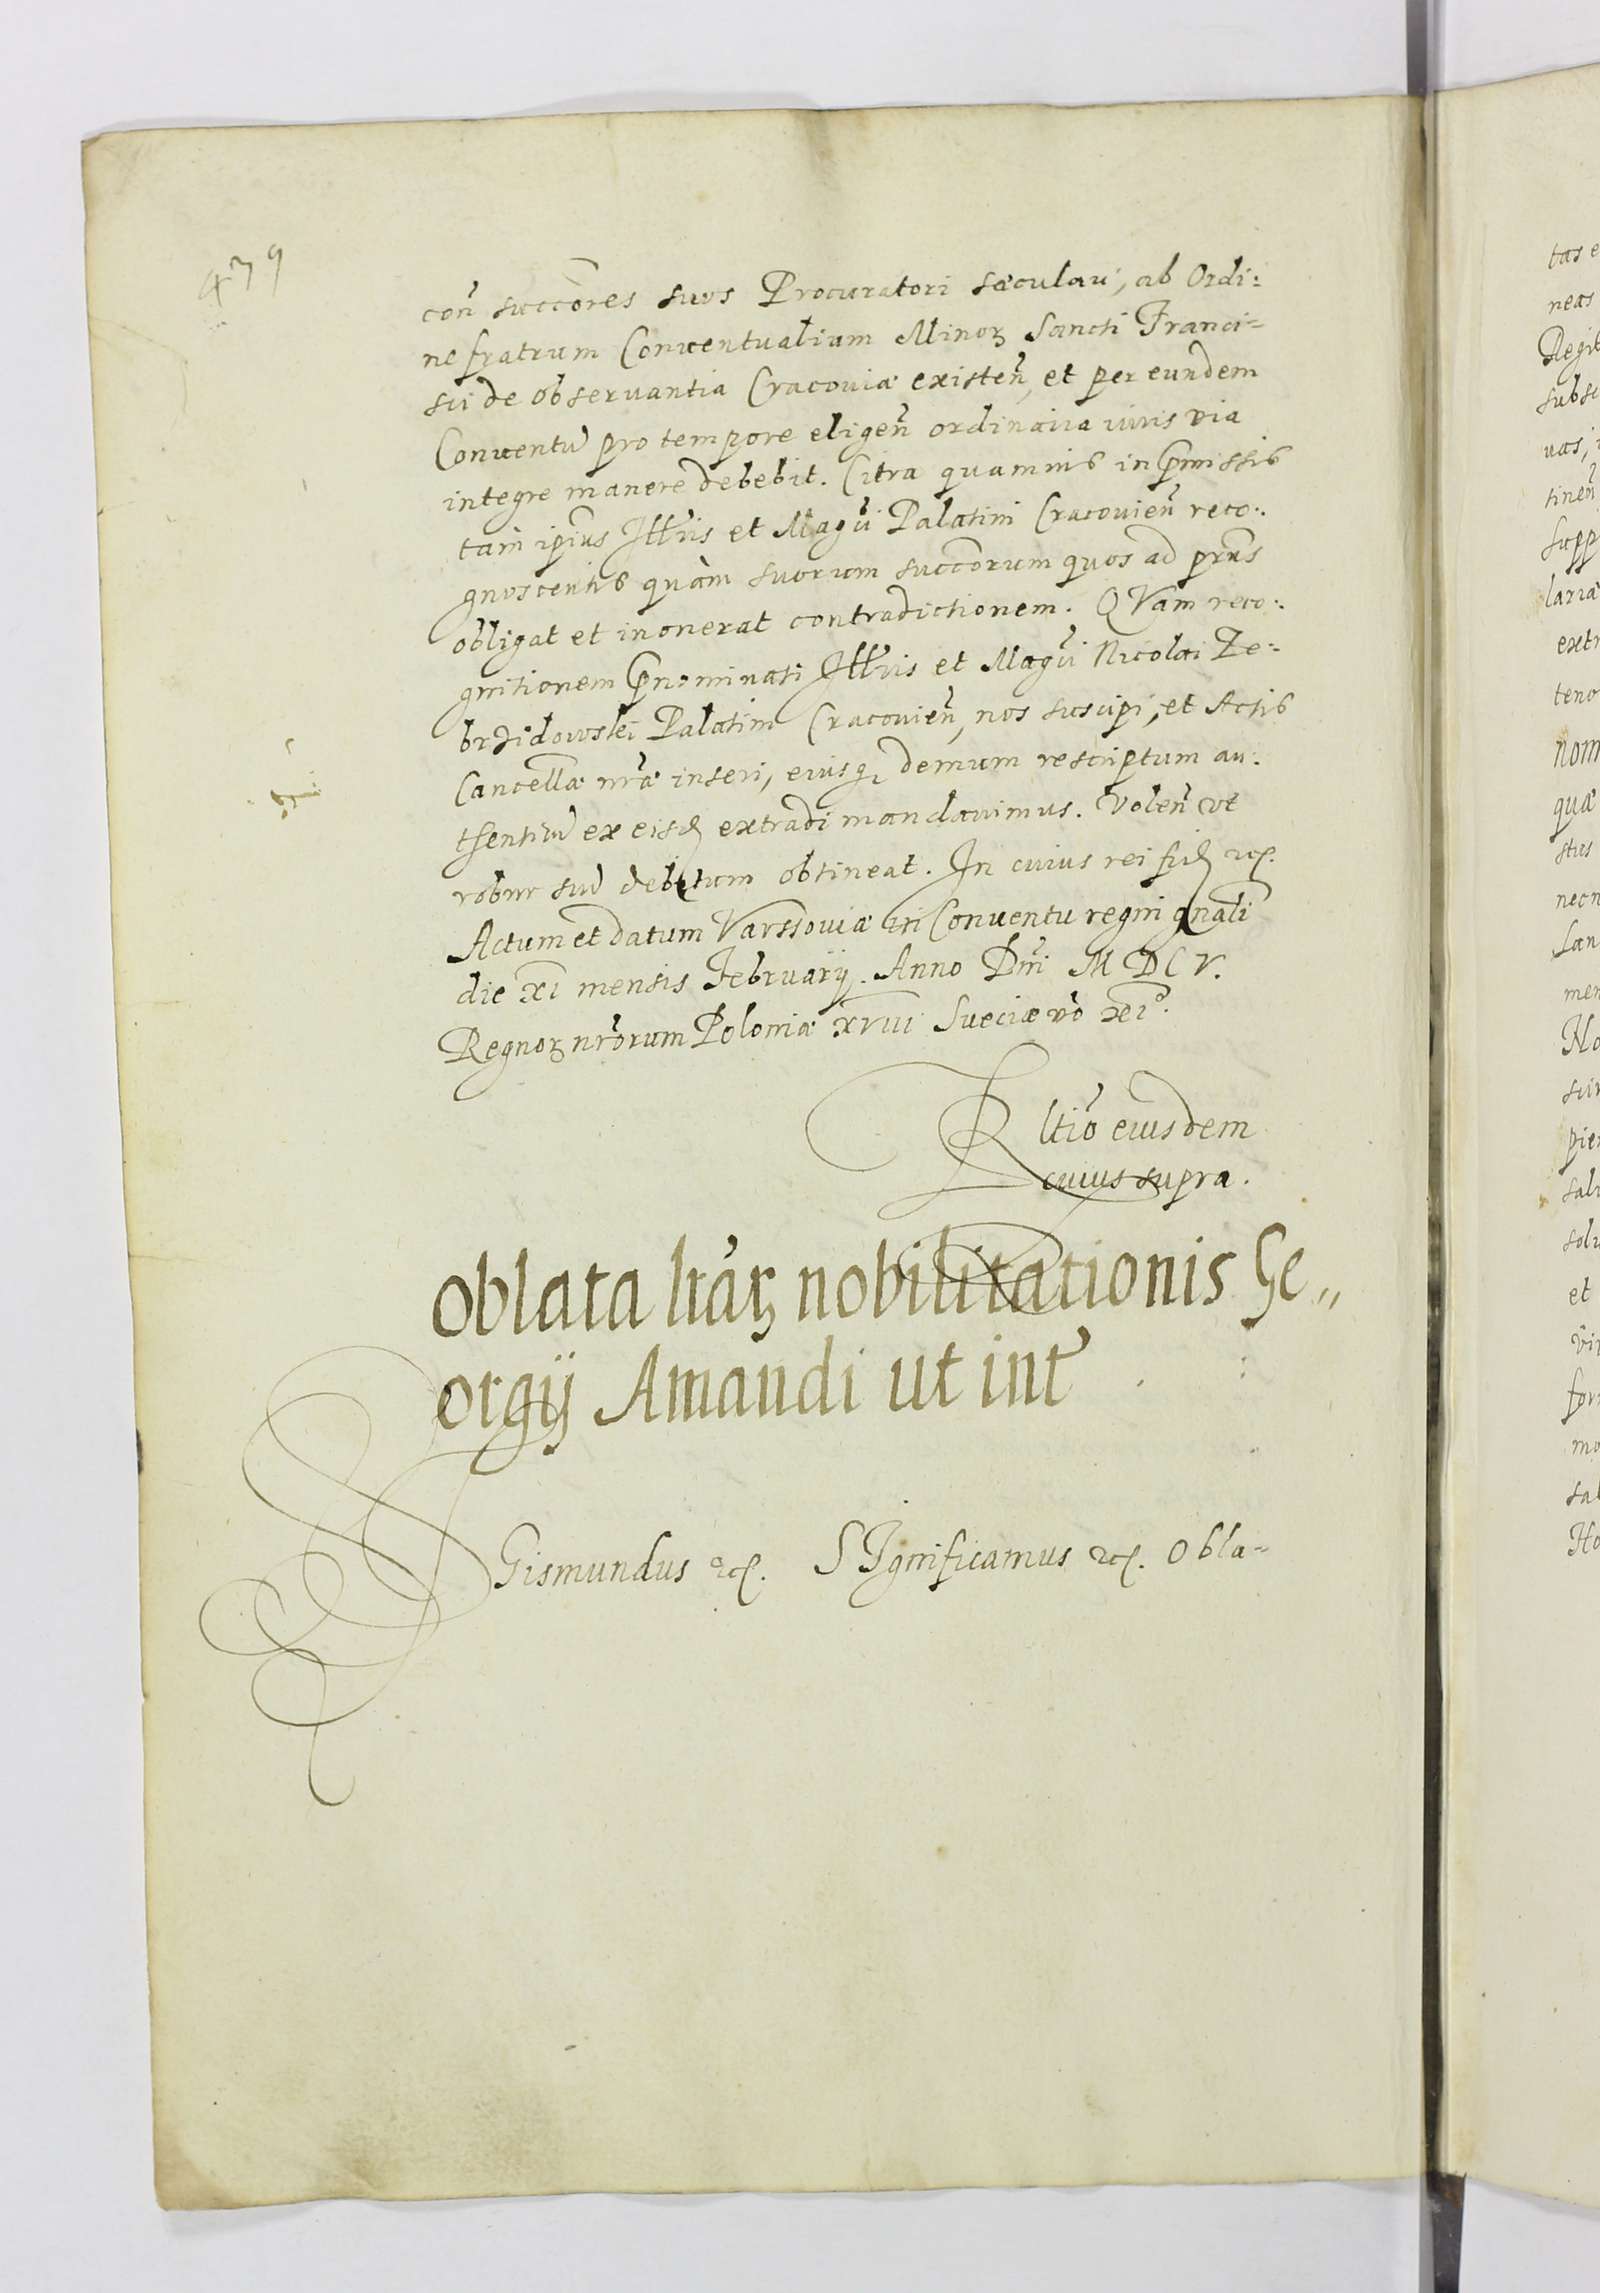 439
con̄ succōres suos Procuratori sæculari, ab Ordi:
ne fratrum Conuentualium Minoꝝ Sancti Franci-
sci de obseruantia Cracouiæ existen̄, et per eundem
Conuentū pro tempore eligen̄ ordinaria iuris via
integre manere debebit. Citra quamuis in p̄missis
tam ip̄ius Ill̄ris et Mag̃ci Palatini Cracouien̄ reco:
gnoscentis quàm suorum succōrum quos ad p̄mis̄
obligat et inonerat contradictionem. QVam reco:
gnitionem p̄nominati Ill̄ris et Mag̃ci Nicolai Ze:
brzidowski Palatini Cracouien̄, nos suscipi, et Actis
Cancell̄æ nr̄æ inseri, eiusqꝫ demum rescriptum au:
thenticū ex eisd extradi mandauimus. Volen̄ vt
robur suū debitum obtineat. In cuius rei fid etc.
Actum et datum Varssouiæ in Conuentu regni gn̄ali
die XI mensis February. Anno Dn̄i MDCV.
Regnoꝝ nr̄orum Poloniæ XVIII Sueciæ v̄o XI°.
Rl̄tio eiusdem
cuius supra.
Oblata lr̄aꝝ nobilitationis Ge„
orgij Amandi ut int̄
SGismundus etc. SIgnificamus etc. Obla-
tas e
neas
Regit
subsc
uas, i
tinen̄
supp
laria
extr
teno
nom
quæ
stus
necn
San
men
No
scin
pien
sal
solu
et
vir
for
mo
sal
Ho